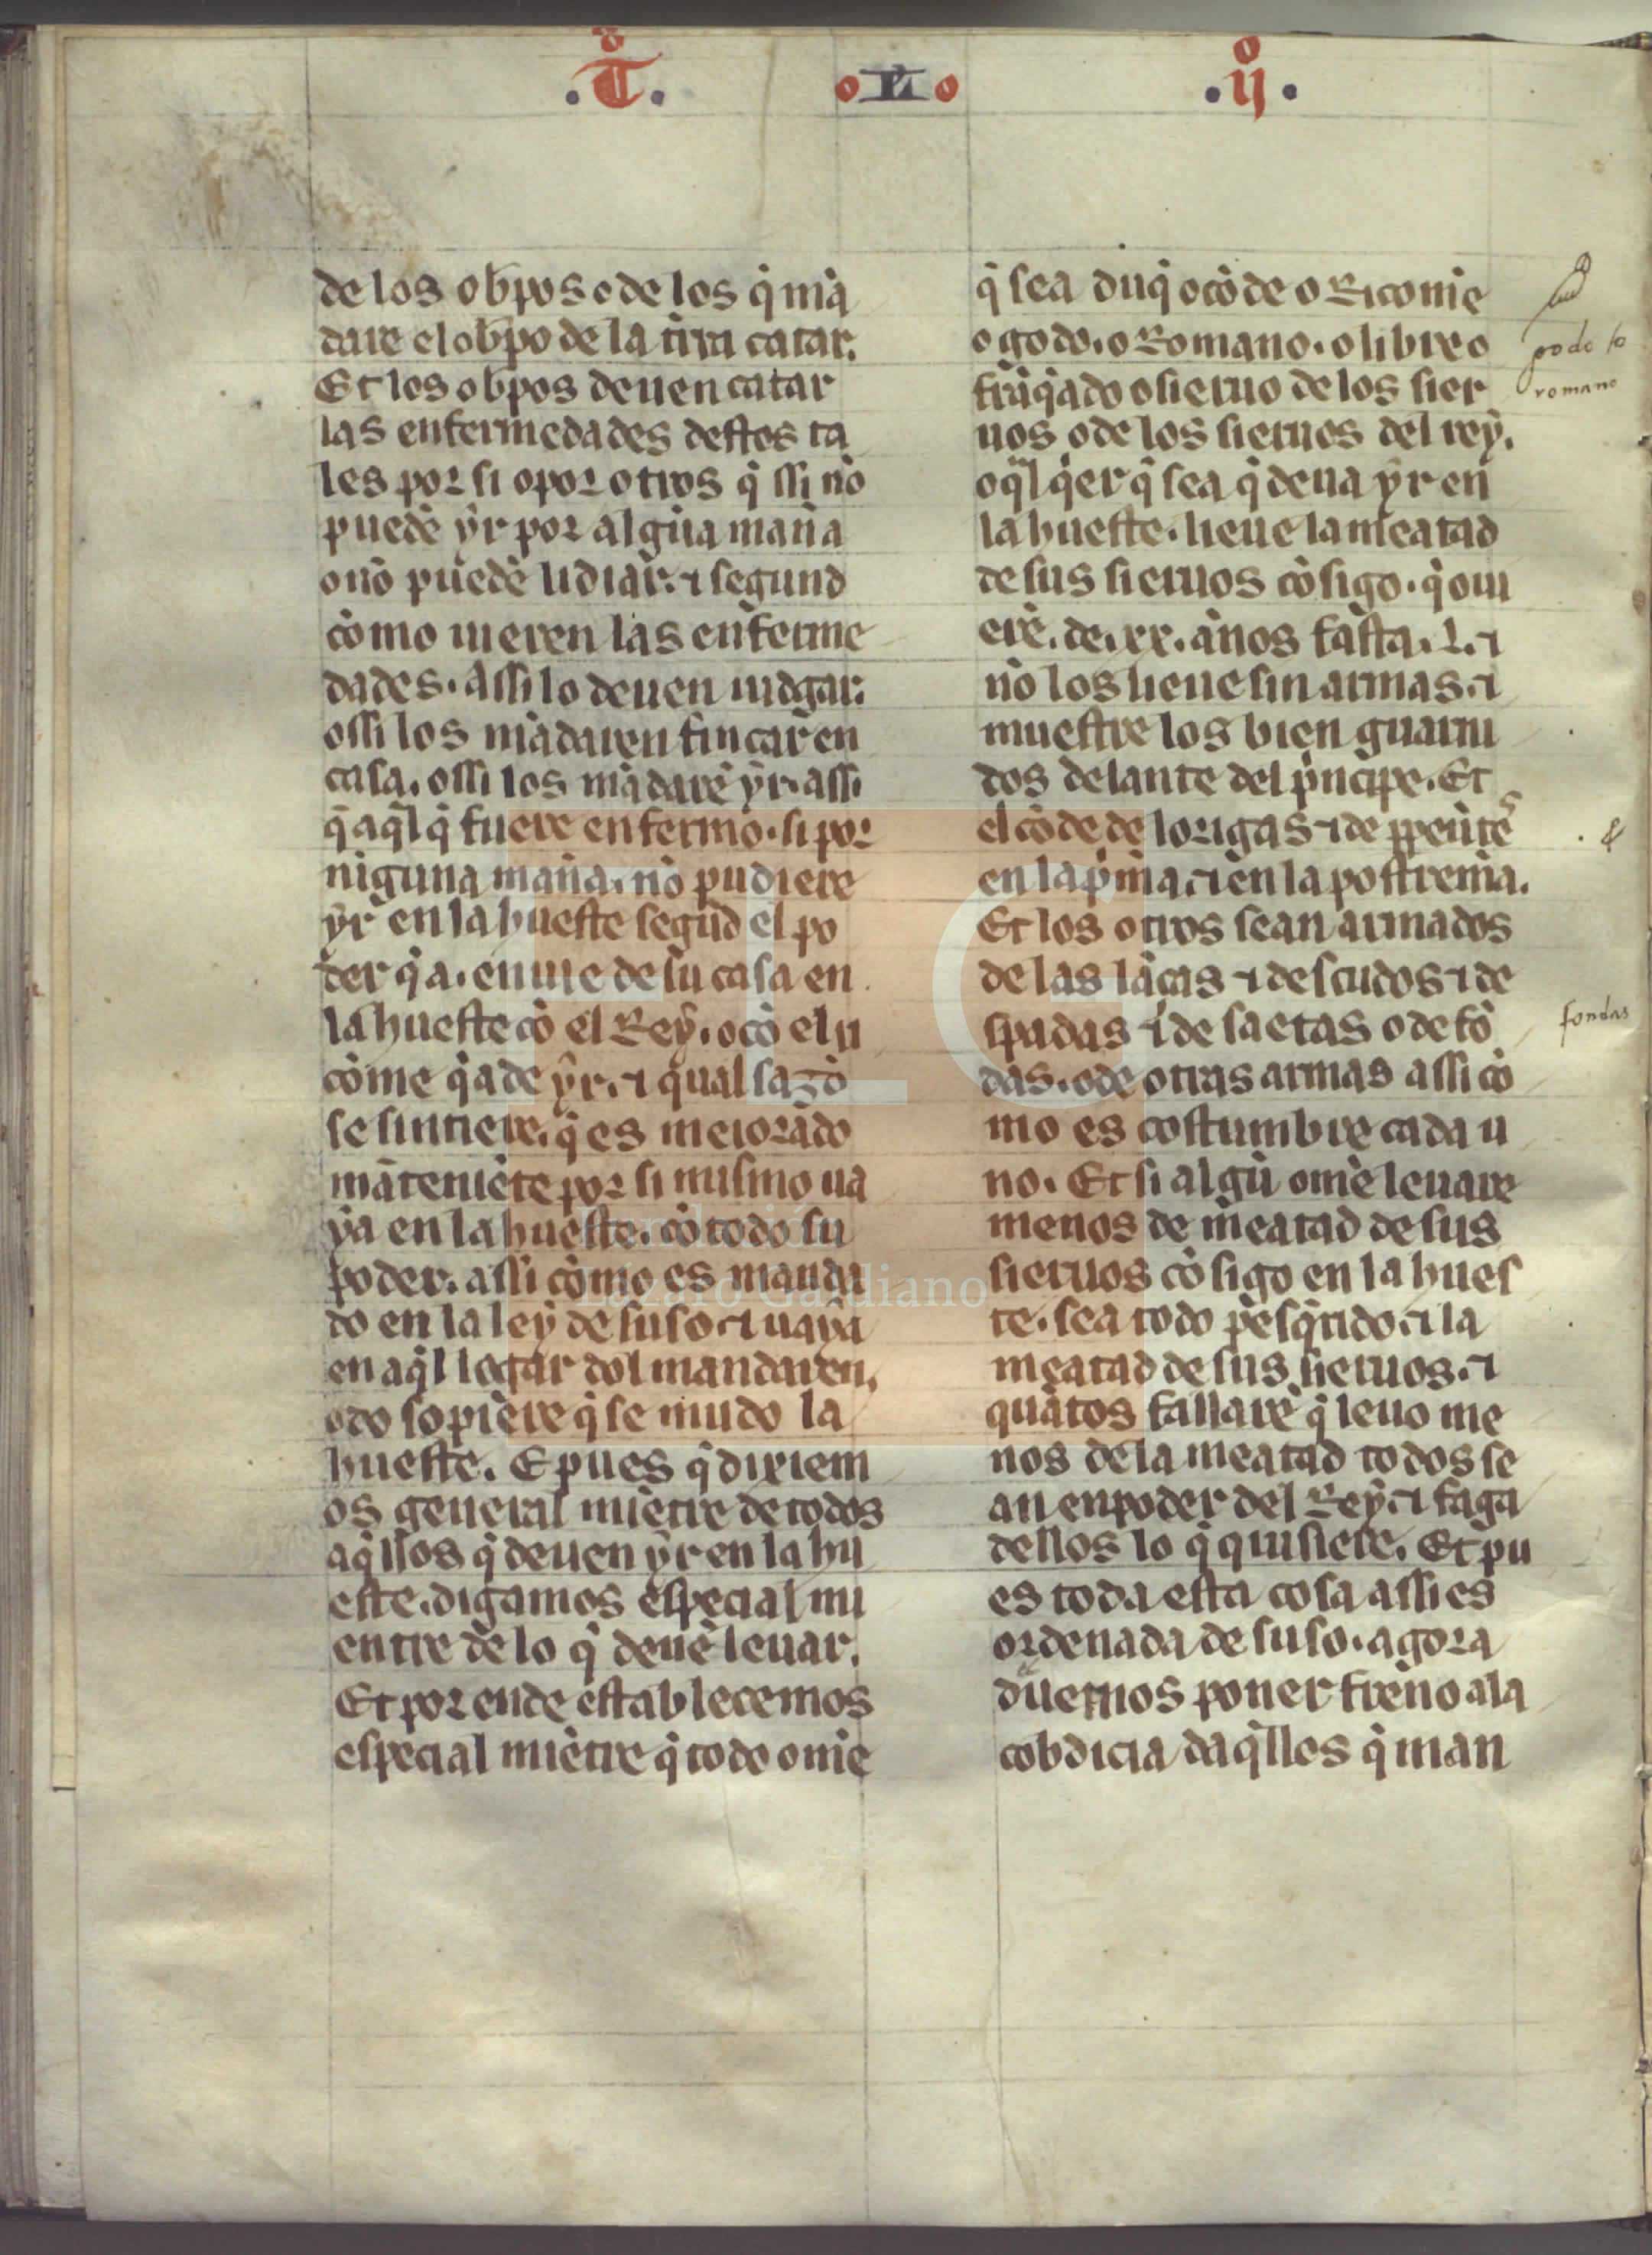 .To. oLo .ijo.
de los obpos o de los q̃ mã
dare el obpo de la tr̃ra catar.
Et los obpos deuen catar
las enfermedades destos ta
les por si o por otros q̃ ssi nõ
puedẽ ỳr por algũa mañа
o nõ puedẽ lidiar. ⁊ segund
cõmo uieren las enferme
dades. assi lo deuen iudgar.
ossi los mãdaren fincar en
casa. ossi los mãdarẽ ỳr. assi
q̃ aq̃l q̃ fuere enfermo. si por
niguna mañа. nõ pudiere
ỳr en la hueste segũd el po
der q̃ a. enuie de su casa en
la hueste cõ el Reỳ. o cõ el u
cõme q̃ a de ỳr. ⁊ qual sazõ
se sintiere. q̃ es meiorado
mãteniẽte por si mismo ua
ỳa en la hueste. cõ todo su
poder. assi cõmo es manda
do en la leỳ de suso. ⁊ uaỳa
en aq̃l logar dol mandaren.
odo sopiere q̃ se mudo la
hueste. E pues q̃ dixiem
os general miẽtre de todos
aq̃llos q̃ deuen ỳr en la hu
este. digamos especial mi
entre de lo q̃ deuẽ leuar.
Et por ende establecemos
especial miẽtre q̃ todo omẽ
q̃ sea duq̃ o cõde o Rico omẽ
o godo. o Romano. o libre o
frãq̃ado o sieruo de los sier
uos o de los sieruos del reỳ.
o q̃l q̃er q̃ sea q̃ deua ỳr en
la hueste. lieue la meatad
de sus sieruos cõsigo. q̃ oui
erẽ. de. xx. años fasta. L. ⁊
nõ los lieue sin armas. ⁊
muestre los bien guarni
dos delante del p̃ncipe. Et
el cõde de lorigas ⁊ de ꝑpeũtẽs
en la p̃mia. ⁊ en la postremia.
Et los otros sean armados
de las lãças ⁊ descudos ⁊ de
spadas ⁊ de saetas o de fõ
das. o de otras armas assi cõ
mo es costumbre cada u
no. Et si algũ omẽ leuare
menos de meatad de sus
sieruos cõsigo en la hues
te. sea todo pesq̃rido. ⁊ la
meatad de sus sieruos. ⁊
quãtos fallarẽ q̃ leuo me
nos de la meatad todos se
an en poder del Reỳ. ⁊ faga
dellos lo q̃ quisiere. Et pu
es toda esta cosa assi es
ordenada de suso. agora
dũemos poner freno a la
cobdicia daq̃llos q̃ man
godo lo
romano
. &
fondas
FLG
Fundación
Lázaro Galdiano